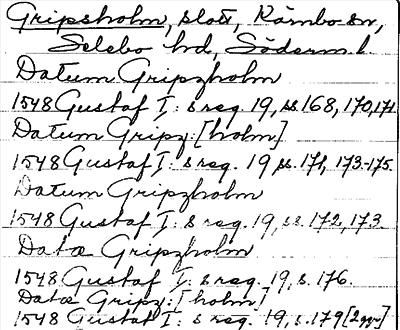 Gripsholm, slott, Kärnbo sn,
Selebo hd, Söderm. l.
Datum Gripzholm
1548 Gustaf I: s reg. 19, ss 168, 170, 171
Datum Gripz: [holm]
1548 Gustaf I: s reg. 19 ss. 171, 173-175.
Datum Gripzholm
1548 Gustaf I: s reg. 19, ss. 172, 173.
Datæ Gripzholm
1548 Gustaf I: s reg. 19, s. 176.
Datæ Gripz: [holm]
1548 Gustaf I: s reg. 19, s. 179 [2 ggr]